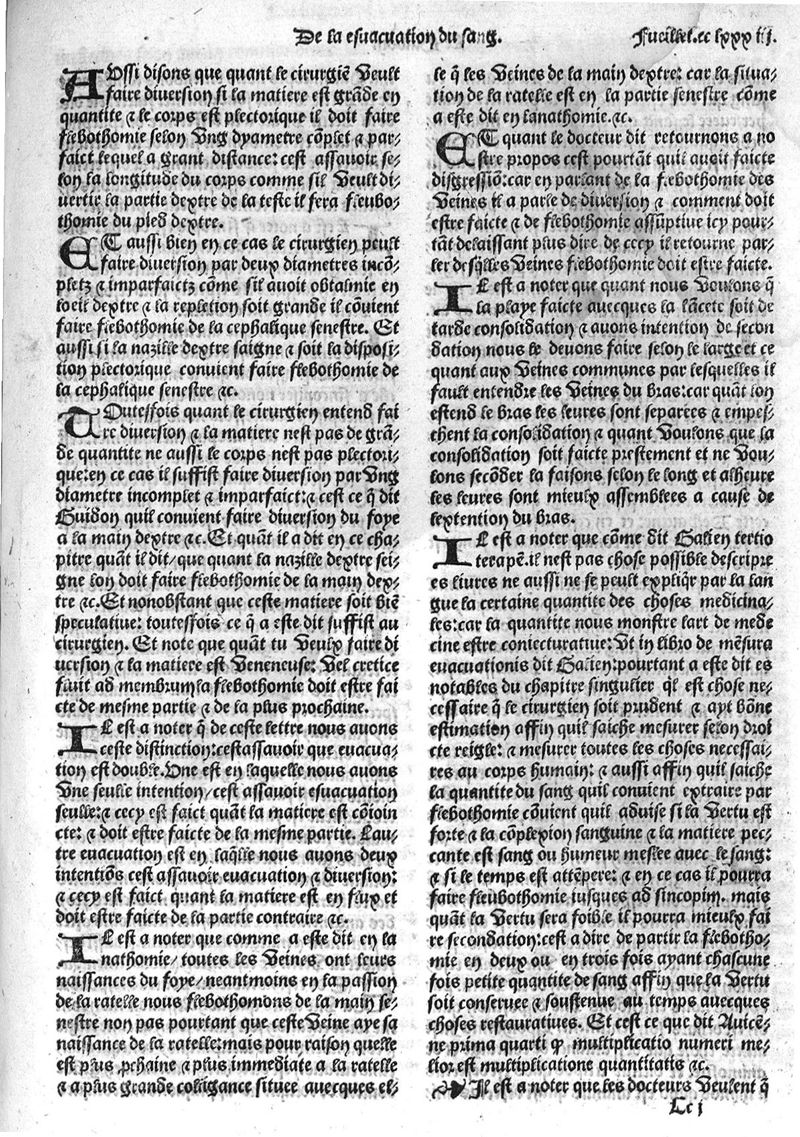 De la esuacuation du sang.
Fueillet.cc lxxx iij.
AUssi disons que quant le cirurgiē veult
faire diversion si la matiere est grāde en
quantite ⁊ le corps est plectorique il doit faire
flebothomie selon ung dyametre cōplet ⁊ par-
faict lequel a grant distance: cest assavoir se-
lon la longitude du corps comme sil veult di-
vertir la partie dextre de la teste il fera fleubo-
thomie du pied dextre.
ET aussi bien en ce cas le cirurgien peult
faire diversion par deux diametres incō-
pletz ⁊ imparfaictz cōme sil avoit obtalmie en
loeil dextre ⁊ la repletion soit grande il cōvient
faire flebothomie de la cephalique senestre. Et
aussi si la nazille dextre saigne ⁊ soit la disposi-
tion plectorique convient faire flebothomie de
la cephalique senestre ⁊c.
TOutesfois quant le cirurgien entend fai
re diversion ⁊ la matiere nest pas de grā-
de quantite ne aussi le corps nest pas plectori-
que: en ce cas il suffist faire diversion par ung
diametre incomplet ⁊ imparfaict: ⁊ cest ce q̄ dit
Guidon quil convient faire diversion du foye
a la main dextre ⁊c. Et quāt il a dit en ce cha-
pitre quāt il dit/ que quant la nazille dextre sei-
gne lon doit faire flebothomie de la main dex-
tre ⁊c. Et nonobstant que ceste matiere soit biē
speculative: toutesfois ce q̄ a este dit suffist au
cirurgien. Et note que quāt tu veulx faire di
version ⁊ la matiere est veneneuse: vel cretice
fluit ad membrum la flebothomie doit estre fai
cte de mesme partie ⁊ de la plus prochaine.
IL est a noter q̄ de ceste lettre nous avons
ceste distinction: cestassavoir que evacua-
tion est double. Une est en laquelle nous avons
une seulle intention/ cest assavoir esvacuation
seulle: ⁊ cecy est faict quāt la matiere est cōioin
cte: ⁊ doit estre faicte de la mesme partie. Lau-
tre evacuation est en laq̄lle nous avons deux
intentiōs cest assavoir evacuation ⁊ diversion:
⁊ cecy est faict quant la matiere est en flux et
doit estre faicte de la partie contraire ⁊c.
IL est a noter que comme a este dit en la
nathomie/ toutes les veines ont leurs
naissances du foye/ neantmoins en la passion
de la ratelle nous flebothomons de la main se-
nestre non pas pourtant que ceste veine aye sa
naissance de la ratelle: mais pour raison quelle
est plus ꝓchaine ⁊ plus immediate a la ratelle
⁊ a plus grande colligance situee avecques el-
le q̄ les veines de la main dextre: car la situa-
tion de la ratelle est en la partie senestre cōme
a este dit en lanathomie.⁊c.
ET quant le docteur dit retournons a no
stre propos cest pourtāt quil avoit faicte
disgressiō: car en parlant de la flebothomie des
veines il a parle de diversion ⁊ comment doit
estre faicte ⁊ de flebothomie assūptive icy pour-
tāt delaissant plus dire de cecy il retourne par-
ler desq̄lles veines flebothomie doit estre faicte.
IL est a noter que quant nous voulons q̄
la playe faicte avecques la lācete soit de
tarde consolidation ⁊ avons intention de secon
dation nous le devons faire selon le large et ce
quant aux veines communes par lesquelles il
fault entendre les veines du bras: car quāt lon
estend le bras les leures sont separees ⁊ empes-
chent la consolidation ⁊ quant voulons que la
consolidation soit faicte prestement et ne vou-
lons secōder la faisons selon le long et alheure
les leures sont mieulx assemblees a cause de
lextention du bras.
IL est a noter que cōme dit Galien tertio
terapē. il nest pas chose possible descripre
es livres ne aussi ne se peult expliq̄r par la lan
gue la certaine quantite des choses medicina-
les: car la quantite nous monstre lart de mede
cine estre coniecturative: Ut in libro de mēsura
evacuationis dit Galien: pourtant a este dit es
notables du chapitre singulier q̄l est chose ne-
cessaire q̄ le cirurgien soit prudent ⁊ ayt bōne
estimation affin quil saiche mesurer selon droi
cte reigle: ⁊ mesurer toutes les choses necessai-
res au corps humain: ⁊ aussi affin quil saiche
la quantite du sang quil convient extraire par
flebothomie cōvient quil advise si la vertu est
forte ⁊ la cōplexion sanguine ⁊ la matiere pec-
cante est sang ou humeur meslee avec le sang:
⁊ si le temps est attēpere: ⁊ en ce cas il pourra
faire fleubothomie iusques ad sincopim. mais
quāt la vertu sera foible il pourra mieulx fai
re secondation: cest a dire de partir la flebotho-
mie en deux ou en trois fois ayant chascune
fois petite quantite de sang affin que la vertu
soit conservee ⁊ soustenue au temps avecques
choses restauratives. Et cest ce que dit Avicē-
ne prima quarti ꝙ multiplicatio numeri me-
lior est multiplicatione quantitatis ⁊c.
Il est a noter que les docteurs veulent q̄
Cc j